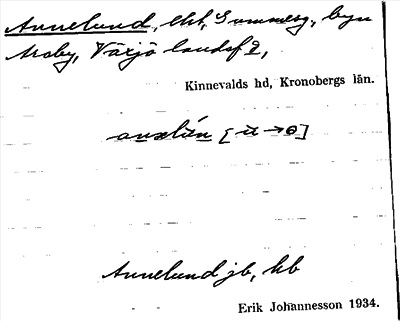 Annelund, Gunnesg, byn
Aroby, Växjö landsf 2,
Kinnevalds hd, Kronobergs län.
Annelund jb, kb
Erik Johannesson 1934.